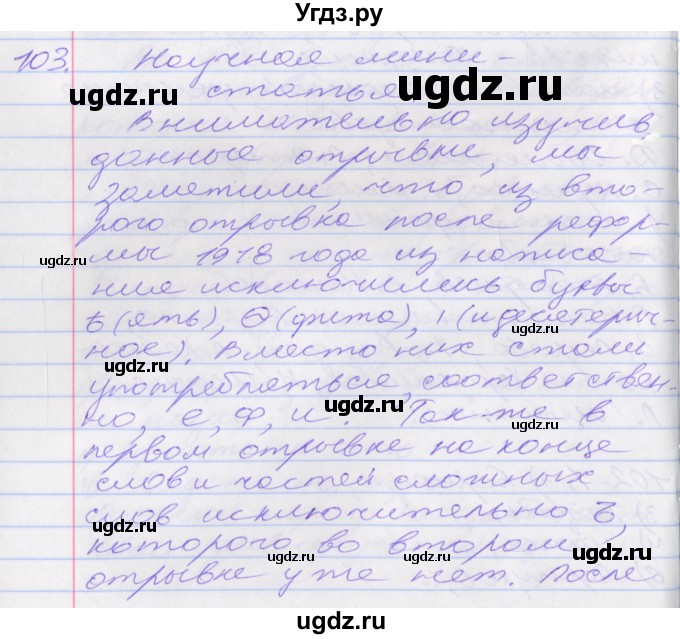 Угдз.ру
103. Научная мини-
статья
Внимательно изучив
данные отрывки, мы
заметили, что из вто-
рого отрывка после рефор-
мы 1918 года из написа-
ния исключились буквы
ѣ (ять), Ѳ (фита), i (и десятерич-
ное). Вместо них стали
употребляться, соответствен-
но, е, ф, и. Так же в
первом отрывке на конце
слов и частей сложных
слов исключительно ъ,
которого во втором
отрывке уже нет. После
ugdz.ru
ugdz.ru
ugdz.ru
ugdz.ru
ugdz.ru
ugdz.ru
ugdz.ru
ugdz.ru
ugdz.ru
ugdz.ru
ugdz.ru
ugdz.ru
ugdz.ru
ugdz.ru